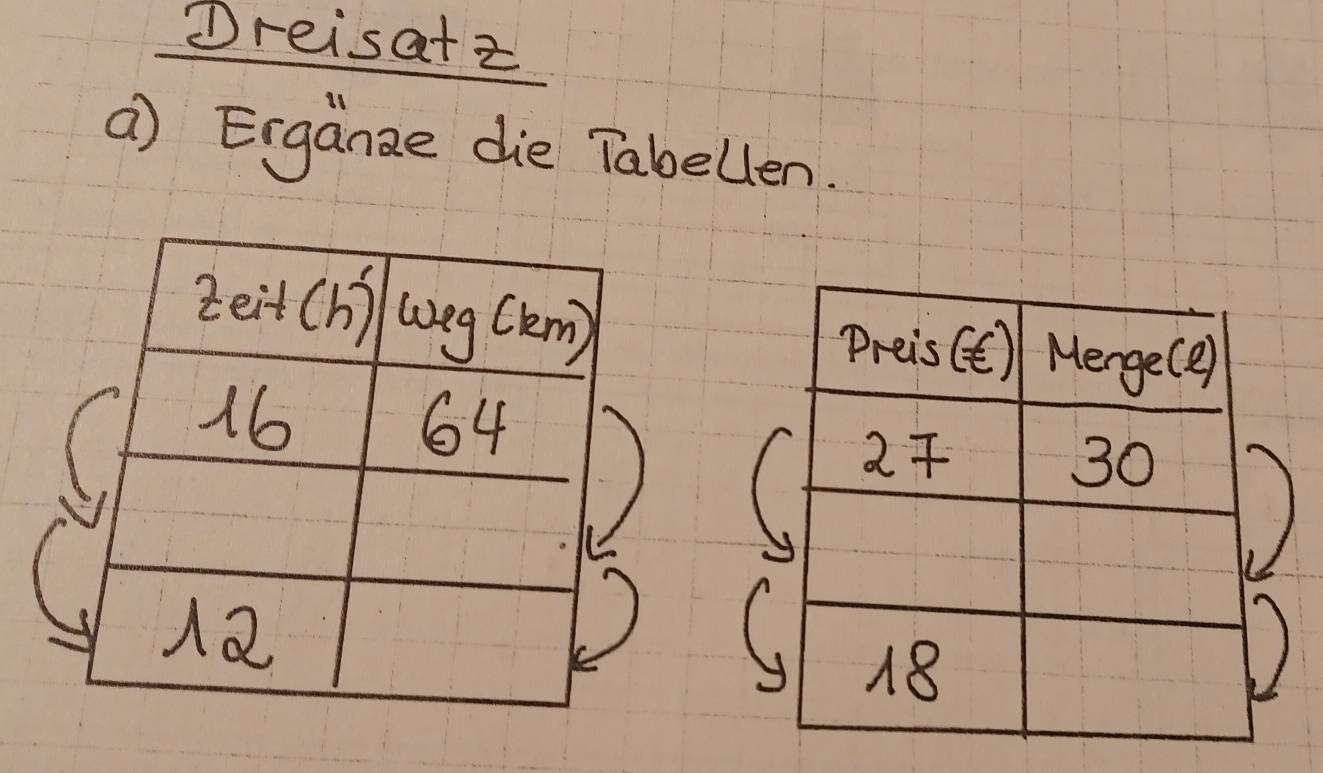 Dreisatz
a) Ergänze die Tabellen.
Zeit(h) Weg (km)
16 64
12
Preis(€) Menge(l)
27 30
18